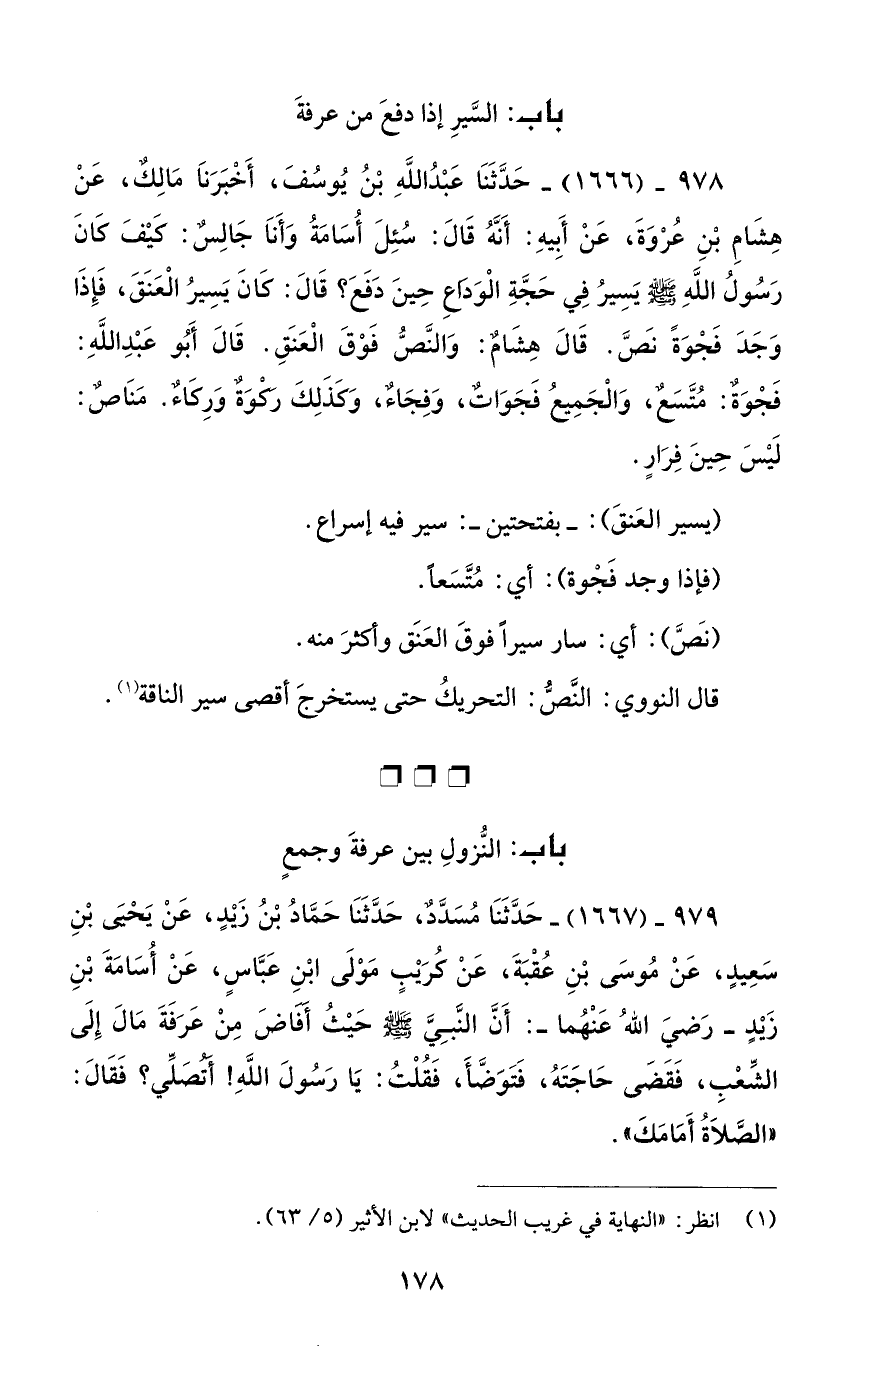 باب: السَّيرِ إذا دفعَ من عرفةَ
٩٧٨ ـ (١٦٦٦) ـ حَدَّثَنَا عَبْدُاللَّهِ بْنُ يُوسُفَ، أَخْبَرَنَا مَالِكٌ، عَنْ
هِشَامِ بْنِ عُرْوَةَ، عَنْ أَبِيهِ: أَنَّهُ قَالَ: سُئِلَ أُسَامَةُ وَأَنَا جَالِسٌ: كَيْفَ كَانَ
رَسُولُ اللَّهِ ﷺ يَسِيرُ فِي حَجَّةِ الْوَدَاعِ حِينَ دَفَعَ؟ قَالَ: كَانَ يَسِيرُ الْعَنَقَ، فَإِذَا
وَجَدَ فَجْوَةً نَصَّ. قَالَ هِشَامٌ: وَالنَّصُّ فَوْقَ الْعَنَقِ. قَالَ أَبُو عَبْدِاللَّهِ:
فَجْوَةٌ: مُتَّسَعٌ، وَالْجَمِيعُ فَجَوَاتٌ، وَفِجَاءٌ، وَكَذَلِكَ رَكْوَةٌ وَرِكَاءٌ. مَنَاصٌ:
لَيْسَ حِينَ فِرَارٍ.
(يسير العَنقَ): ـ بفتحتين ـ: سير فيه إسراع.
(فإذا وجد فَجْوة): أي: مُتَّسَعاً.
(نَصَّ): أي: سار سيراً فوقَ العَنَق وأكثرَ منه.
قال النووي: النَّصُّ: التحريكُ حتى يستخرجَ أقصى سير الناقة(١).
❒ ❒ ❒
باب: النُّزولِ بين عرفةَ وجمعٍ
٩٧٩ ـ (١٦٦٧) ـ حَدَّثَنَا مُسَدَّدٌ، حَدَّثَنَا حَمَّادُ بْنُ زَيْدٍ، عَنْ يَحْيَى بْنِ
سَعِيدٍ، عَنْ مُوسَى بْنِ عُقْبَةَ، عَنْ كُرَيْبٍ مَوْلَى ابْنِ عَبَّاسٍ، عَنْ أُسَامَةَ بْنِ
زَيْدٍ ـ رَضِيَ اللهُ عَنْهُما ـ: أَنَّ النَّبِيَّ ﷺ حَيْثُ أَفَاضَ مِنْ عَرَفَةَ مَالَ إِلَى
الشِّعْبِ، فَقَضَى حَاجَتَهُ، فَتَوَضَّأَ، فَقُلْتُ: يَا رَسُولَ اللَّهِ! أَتُصَلِّي؟ فَقَالَ:
«الصَّلاَةُ أَمَامَكَ».
(١) انظر: «النهاية في غريب الحديث» لابن الأثير (٥/ ٦٣).
١٧٨